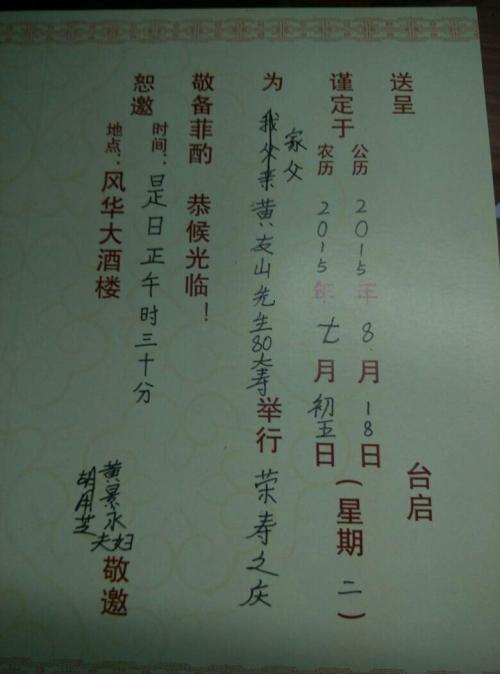 送呈 台启
谨定于 公历 2015年 8月 18日
农历 2015年 七月初五日 (星期二)
为 家父 我父亲黄友山先生80大寿 举行 荣寿之庆
敬备菲酌 恭候光临！
恕邀 时间：是日正午时三十分
地点：风华大酒楼
黄景永
胡用芝 夫妇 敬邀